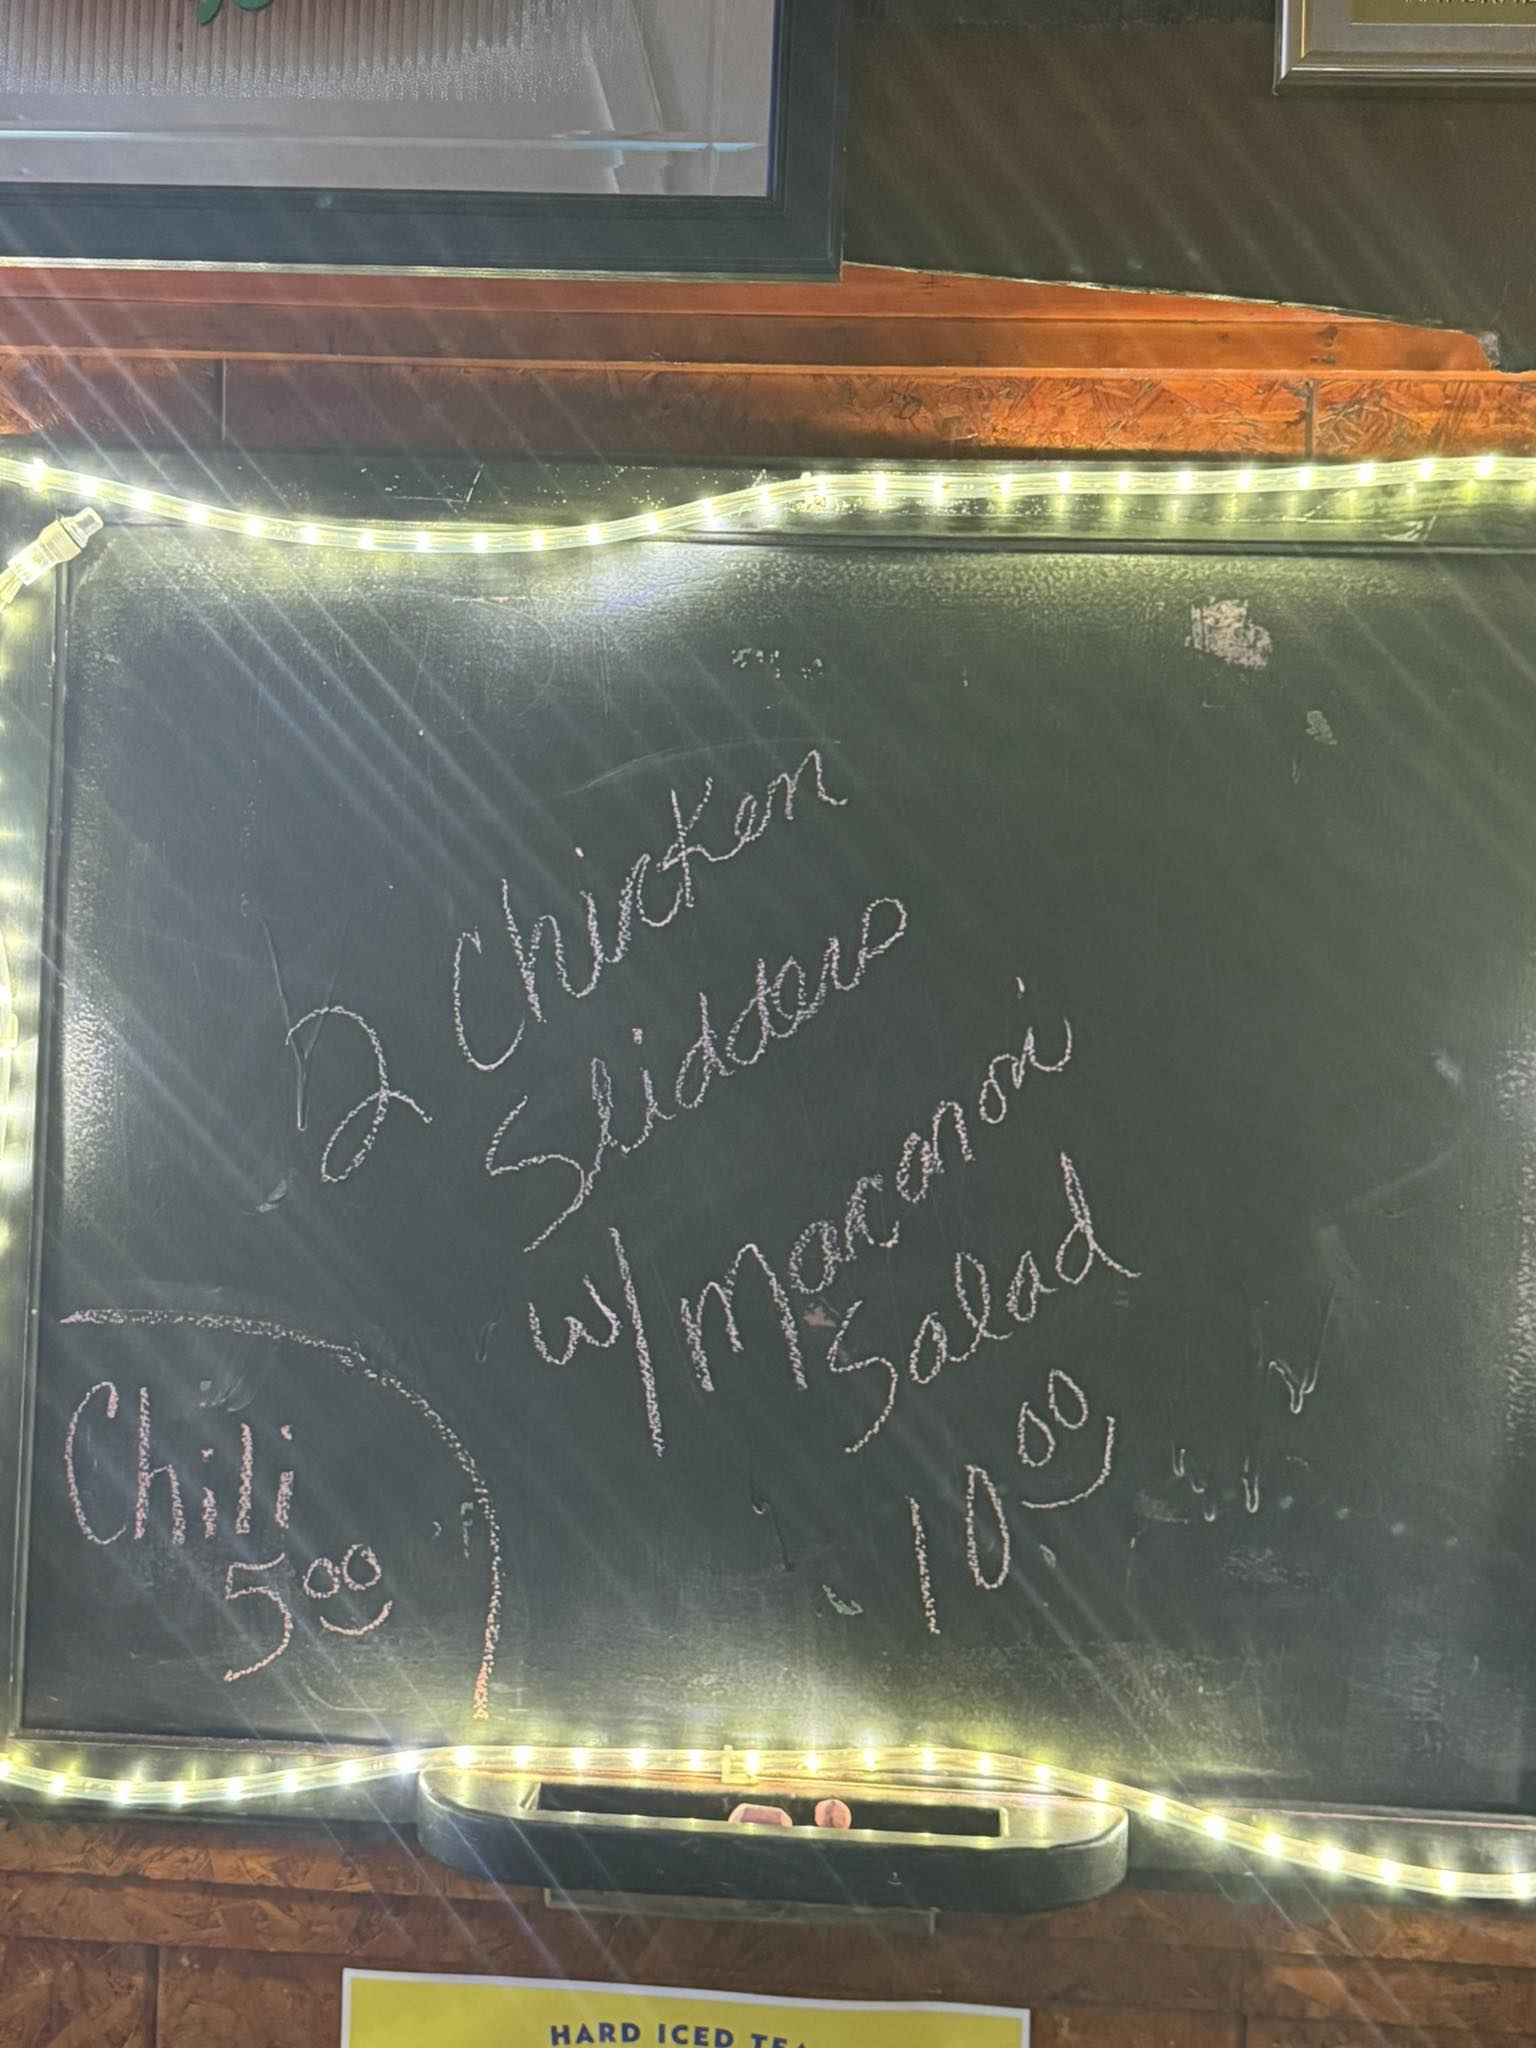 2 Chicken
Slidders
w/ Macaroni
Salad
10.00
Chili
5.00
HARD ICED TEA